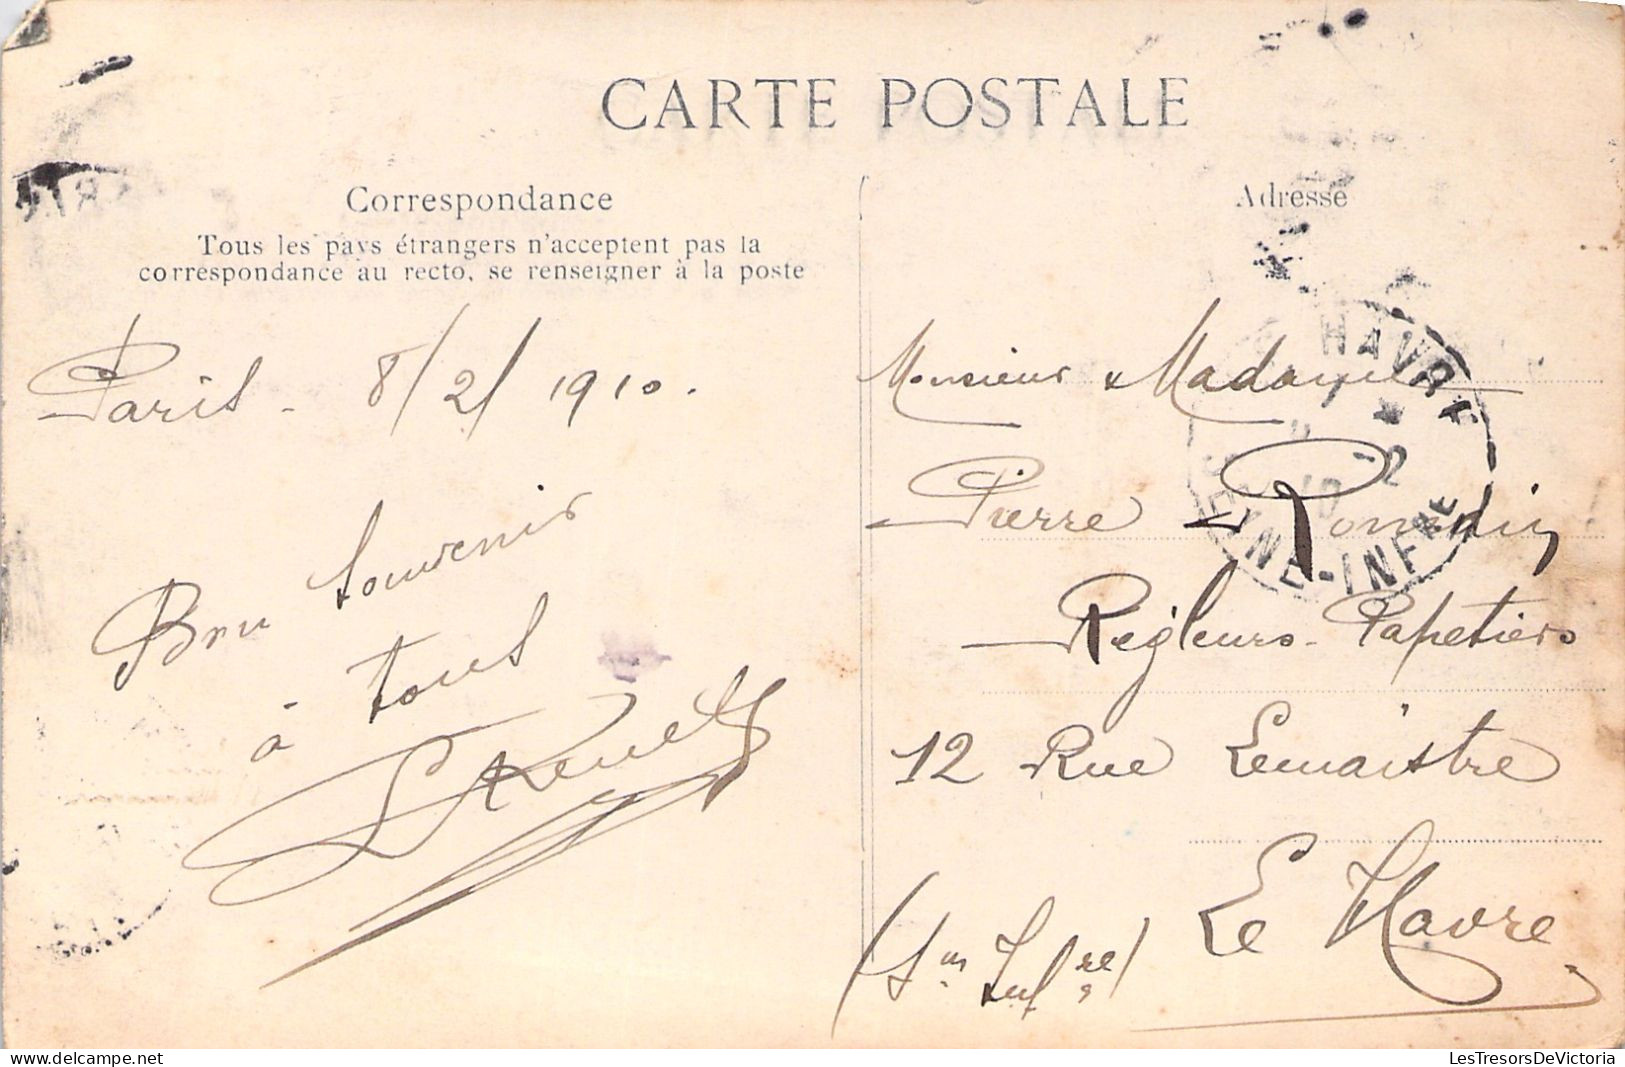 CARTE POSTALE
Correspondance
Tous les pays étrangers n'acceptent pas la
correspondance au recto, se renseigner à la poste
Paris - 8/2/1910.
Bon souvenir
à tous
Adresse
Monsieur & Madame
Pierre
Régleurs-Papetiers
12 Rue Lemaistre
Le Havre
(Sne Infre)
HAVRE
SEINE-INFRE
LesTresorsDeVictoria